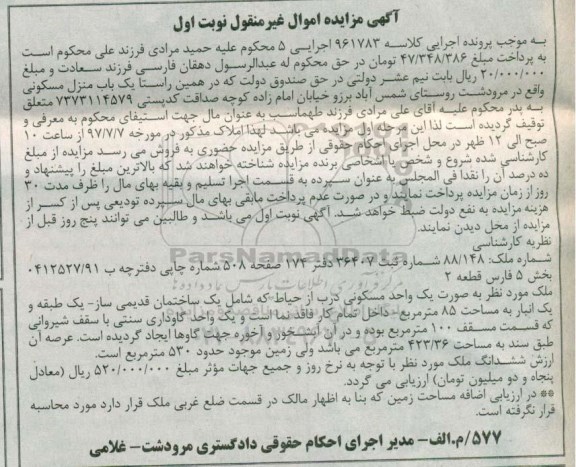 آگهی مزایده اموال غیرمنقول نوبت اول
به موجب پرونده اجرایی کلاسه ۹۶۱۷۸۳ اجرایی ۵ محکوم علیه حمید مرادی فرزند علی محکوم است
به پرداخت مبلغ ۴۷/۳۴۸/۳۸۶ تومان در حق محکوم له عبدالرسول دهقان فارسی فرزند سعادت و مبلغ
۲۰/۰۰۰/۰۰۰ ریال بابت نیم عشر دولتی در حق صندوق دولت که در همین راستا یک باب منزل مسکونی
واقع در مرودشت روستای شمس آباد برزو خیابان امام زاده کوچه صداقت کدپستی ۷۳۷۳۱۱۴۵۷۹ متعلق
به پدر محکوم علیه آقای علی مرادی فرزند طهماسب به عنوان مال جهت استیفای محکوم به معرفی و
توقیف گردیده است لذا این مرحله اول مزایده می باشد لهذا املاک مذکور در مورخه ۹۷/۷/۷ از ساعت ۱۰
صبح الی ۱۲ ظهر در محل اجرای احکام حقوقی از طریق مزایده حضوری به فروش می رسد مزایده از مبلغ
کارشناسی شده شروع و شخص یا اشخاصی برنده مزایده شناخته خواهند شد که بالاترین مبلغ را پیشنهاد و
ده درصد آن را نقدا فی المجلس به عنوان سپرده به قسمت اجرا تسلیم و بقیه بهای مال را ظرف مدت ۳۰
روز از زمان مزایده پرداخت نمایند و در صورت عدم پرداخت مابقی بهای مال سپرده تودیعی پس از کسر از
هزینه مزایده به نفع دولت ضبط خواهد شد. آگهی نوبت اول می باشد و طالبین می توانند پنج روز قبل از
مزایده از محل دیدن نمایند.
نظریه کارشناسی
شماره ملک: ۸۸/۱۴۸ شماره ثبت ۳۶۴۰۷ دفتر ۱۷۴ صفحه ۵۰۸ شماره چاپی دفترچه ب ۰۴۱۲۵۲۷/۹۱
بخش ۵ فارس قطعه ۲
ملک مورد نظر به صورت یک واحد مسکونی درب از حیاط که شامل یک ساختمان قدیمی ساز- یک طبقه و
یک انبار به مساحت ۸۵ مترمربع - داخل تمام کار فاقد نما است و یک واحد گاوداری سنتی با سقف شیروانی
که قسمت مسقف ۱۰۰ مترمربع بوده و در آن آبشخور و آخوره جهت گاوها ایجاد گردیده است. عرصه آن
طبق سند به مساحت ۴۲۳/۳۶ مترمربع می باشد ولی زمین موجود حدود ۵۳۰ مترمربع است.
ارزش ششدانگ ملک مورد نظر با توجه به نرخ روز و جمیع جهات مؤثر مبلغ ۵۲۰/۰۰۰/۰۰۰ ریال (معادل
پنجاه و دو میلیون تومان) ارزیابی می گردد.
** در ارزیابی اضافه مساحت زمین که بنا به اظهار مالک در قسمت ضلع غربی ملک قرار دارد مورد محاسبه
قرار نگرفته است.
۵۷۷/م.الف- مدیر اجرای احکام حقوقی دادگستری مرودشت- غلامی
ParsNamadData